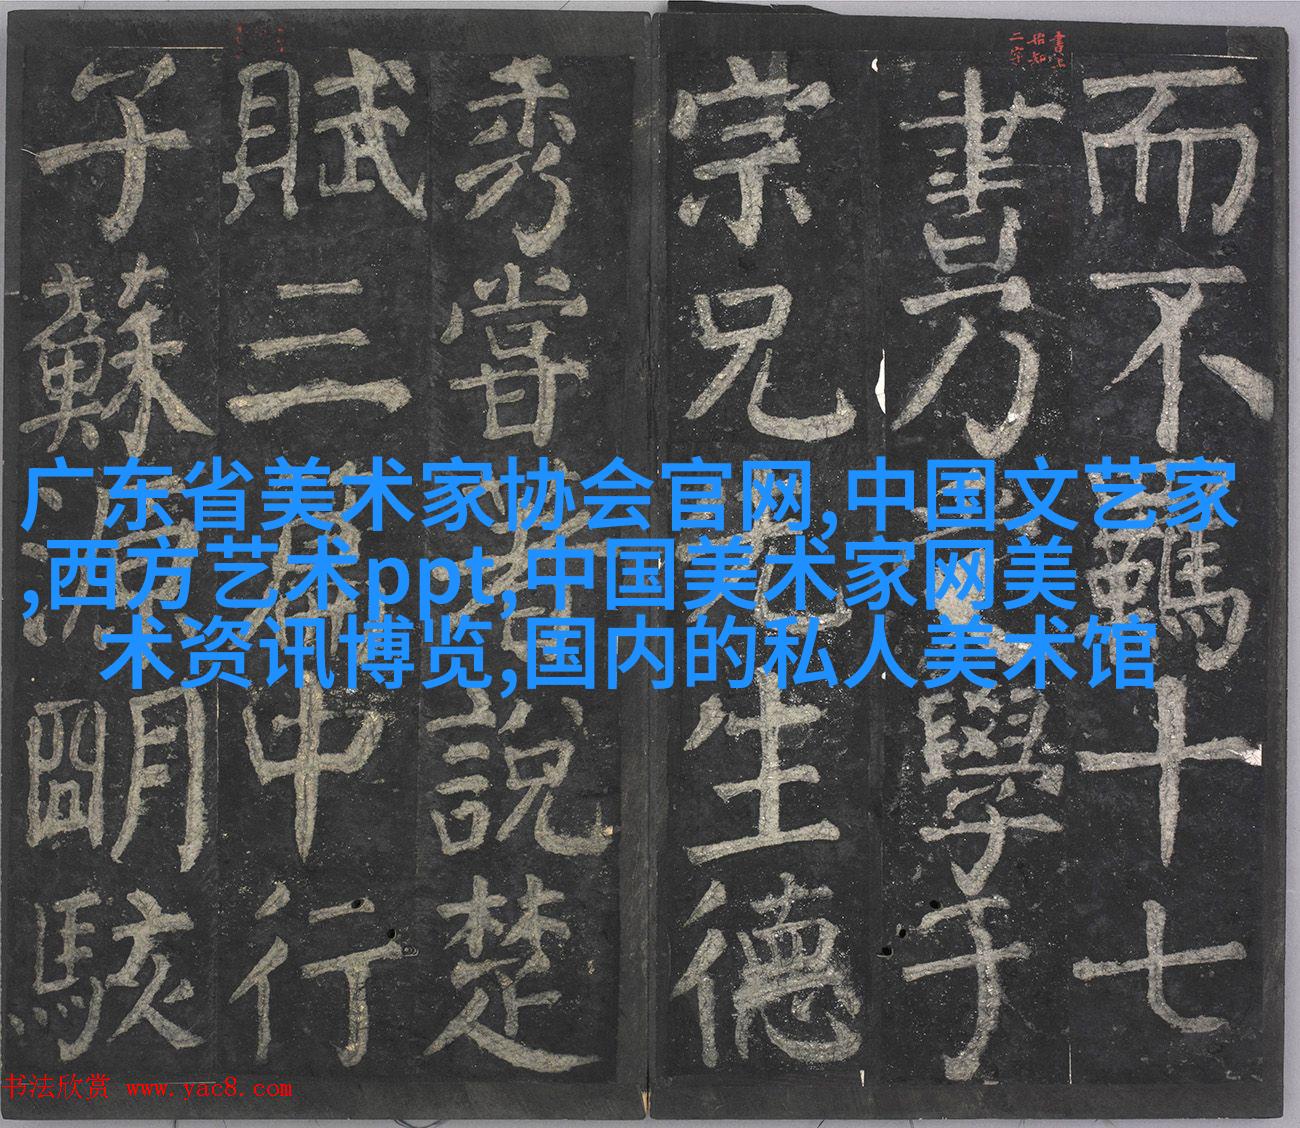 書上
始知
二字
而不羈十七
書乃授學于
宗兄先生德
秀嘗著說楚
賦三篇中行
子蘇源明駭
广东省美术家协会官网,中国文艺家
,西方艺术ppt,中国美术家网美
术资讯博览,国内的私人美术馆
书法欣赏 www.yac8.com